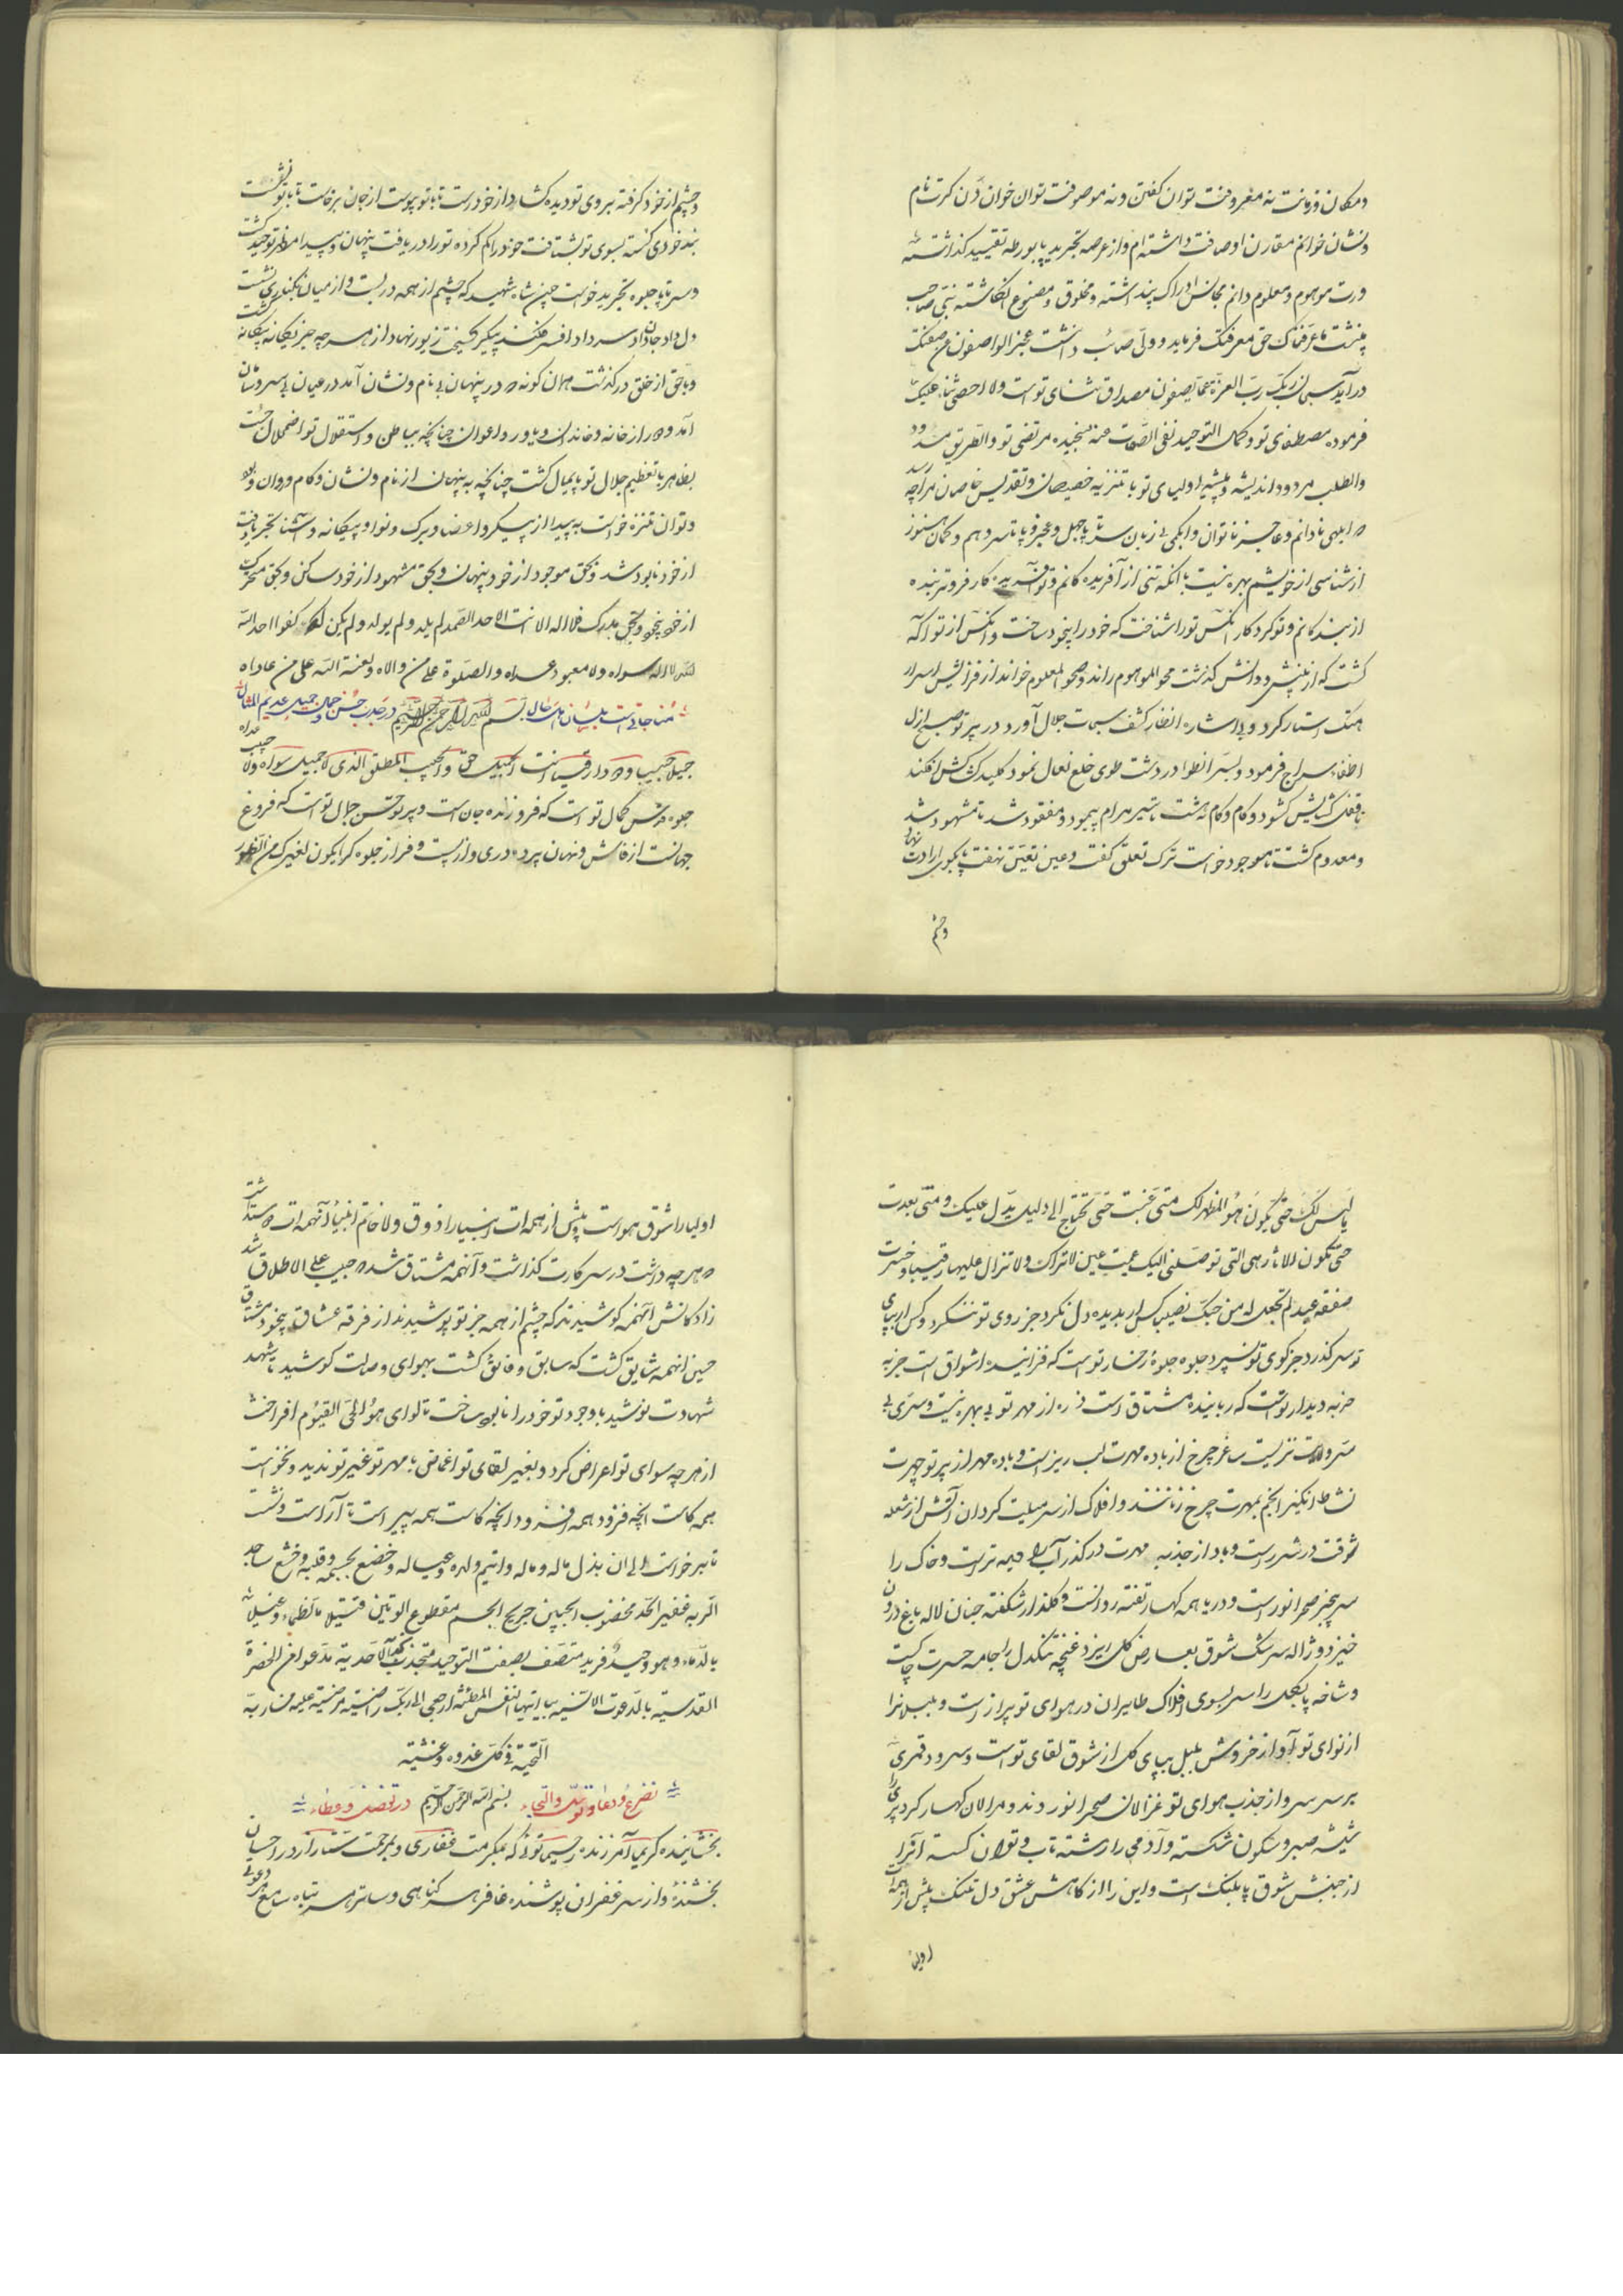 ومکان وزمانت نه معروفت توان گفتن ونه موصوفت توان خواندن گرت نام
ونشان خوانم مقارن اوصافت داشته ام واز عرصه تجرید پا بورطه تقیید گذاشته
ورت موهوم ومعلوم دانم مجانس ادراک پنداشته ومخلوق ومصنوع انگاشته نبی صاحب
بینشت ما عرفناک حق معرفتک فرماید وولی صائب دانشت عجز الواصفون عن صفتک
درآید سبحان ربک رب العزة عما یصفون مصداق ثنای تو است ولا احصی ثناء علیک
فرموده مصطفای تو وکمال التوحید نفی الصفات عنه سنجیده مرتضی تو والطریق مسدود
والطلب مردود اندیشه وپیشه اولیای تو با تنزیه خصیصان وتقدیس خاصان مرا چه رسد
که ابلهی نادانم وعاجز ناتوان وابکمی بی زبان سر تا پا جهل وعجز وپا تا سر وهم وگمان هنوز
از شناسی از خویشم بهره نیست با آنکه تنی از آفریده گانم وتو آفریده کار فروتر بنده
از بنده گانم وتو کردکار آنکس تو را شناخت که خود را بیخود ساخت وآنکس از تو آگه
گشت که از بینش ودانش گذشت محو الموهوم راند وصحو المعلوم خواند از فزایش اسرار
هتک استار کرد وبی اشاره انظار کشف سبحات جلال آورد در پرتو صبح ازل
اطفاء سراج فرمود وبستر انطوا در دشت طوی خلع نعال نمود کلید کشاکش افکند
تا قفل گشایش گشود وکام وکام نهشت تا سیر مرام پیمود ومفقود شد تا مشهود شد
ومعدوم گشت تا موجود خواست ترک تعلق گفت وعین تعین نهفت تا بکوی ارادت نهاد
وچشم
وچشم از خود گرفته بروی تو دیده گشاد از خود رست تا با تو پیوست از جان برخاست تا با تو نشست
بیخودی گشته بسوی تو بشتافت خود را گم کرده تو را دریافت پنهان وپیدا مظهر توحید گشت
وسر تا پا جلوه تجرید خواست چون شاه شهید که چشم از همه در بست واز میان بکناری نشست
دل داد جان داد سر داد افسر فکند پیکر گسیخت زیور نهاد از هر چه جز یگانه بیگانه گشت
وبا حق از خلق درگذشت همان گونه که در پنهان بی نام ونشان آمد در عیان بی سر وسامان
آمد وهم از خانه وخاندان ویاور واعوان چنانچه بباطن واستقلال تو اضمحلال جست
بظاهر با تعظیم جلال تو پایمال گشت چنانچه به پنهان از نام ونشان وکام وروان
وتوان تنزه خواست به پیدا از پیکر واعضا وبرگ ونوا وبیگانه وآشنا تجرد یافت
از خود نابود شد وبحق موجود از خود پنهان وبحق مشهود از خود ساکن وبحق متحرک
از خود بیخود وبحق مدرک فلا اله الا انت الاحد الصمد لم یلد ولم یولد ولم یکن له کفوا احد الله
لا اله سواه ولا معبود عداه والصلوة علی من والاه ولعنة الله علی من عاداه
مناجاتست بلسان اهل حال بسم الله الرحمن الرحیم در جذب حسن وجمال جمیل عدیم المثال
جمیلا حبیبا ودودا رقیبا انت الجمیل حق والحبیب المطلق الذی لا جمیل سواه ولا حبیب عداه
جلوه عرش کمال تو است که فروزنده جان است وپرتو حسن جمال تو است که فروغ
جهانست از فاش ونهان پرده دری واز پست وفراز جلوه گر ایکون لغیرک من الظهور
ما لیس لک حتی یکون هو المظهر لک متی غبت حتی تحتاج الی دلیل یدل علیک ومتی بعدت
حتی تکون الاثار هی التی توصلنی الیک عمیت عین لا تراک ولا تزال علیها رقیبا وخسرت
صفقه عبد لم تجعل له من حبک نصیبا کس ار بدیده دل نگرد جز روی تو ننگرد وکس ار بپای
تو سر گذرد جز کوی تو نسپرد جلوه جلوه رخسار تو است که فزاینده اشواق است جذبه
جذبه دیدار تو است که رباینده مشتاق است ذره از مهر تو بی بهره نیست وسری بی
سر ولایت نزیست ساغر چرخ از باده مهرت لب ریز است وباده مهر از پرتو چهرت
نشاط انگیز انجم بمهرت چرخ زنانند وافلاک از سر میلت گردان آتش از شعله
شوقت در شرر است وباد از جذبه مهرت در گذر آب را دیده تر است وخاک را
سر بچنبر صحرا نور است ودریا همه کهسار تفته روانست وگلزار شکفته جنان لاله باغ درون
خیزد وژاله سرشک شوق بعارض گل ریزد غنچه تنگدل را جامه حسرت چاکست
وشاخه پا بگل را سر بسوی افلاک طایران در هوای تو پر از است وبلبلانرا
از نوای تو آواز خروش بلبل بپای گل از شوق لقای تو است وسرود قمری
بر سر سرو از جذب هوای تو غزالان صحرا نوردند ومرالان کهسار گرد پری را
شیشه صبر وسکون شکسته وآدمی را رشته تاب وتوان گسسته آنرا
از جنبش شوق پا بلنگ است واین را از کاهش عشق دل تنگ پیش از همه
اولیا
اولیا را شوق هم او است وپیش از همه انبیا را ذوق ولا خاتم انبیا آنهمه
که هر چه داشت در سر کارت گذاشت وآنهمه مشتاق شد که حبیب علی الاطلاق شد
زادگانش آنهمه کوشیدند که چشم از همه جز تو پوشیدند از فرقه عشاق بیخود مشتاق
حسین آنهمه شایق گشت که سابق وفائق گشت بهوای وصلت کوشید تا شهد
شهادت نوشید با وجود تو خود را نابود ساخت تا لوای هو الحی القیوم افراخت
از هر چه سوای تو اعراض کرد وبغیر لقای تو اغماض با مهر تو غیر تو ندید ونخواست
همه کاست آنچه فزود همه افزود وآنچه کاست همه پیراست تا آراست ونشست
تا برخواست الی ان بذل ماله وایتم ولده وعیاله وخضع بجسمه وقلبه وخشع ساجدا
لربه عفیر الخد مخضوب الجبین جریح الجسم مقطوع الوتین قتیلا بالظماء وغسیلا
بالدماء وهو وحید فرید متصف بصفت التوحید منجذب الاحدیة مدعوا فی الحضرة
القدسیة بالدعوت الانسیه بیا ایتها النفس المطمئنه ارجعی الی ربک راضیة مرضیة علیه من ربه
التحیة فی کل غدوه وعشیة
تضرع ودعا وتوسل والتجاء بسم الله الرحمن الرحیم در تفضل وعطاء
بخشاینده کریما آمرزنده رحیما توئی که بمکرمت غفاری وبمرحمت ستار از در احسان
بخشنده واز سر غفران پوشنده غافر هر گناهی وساتر هر تباه سامع